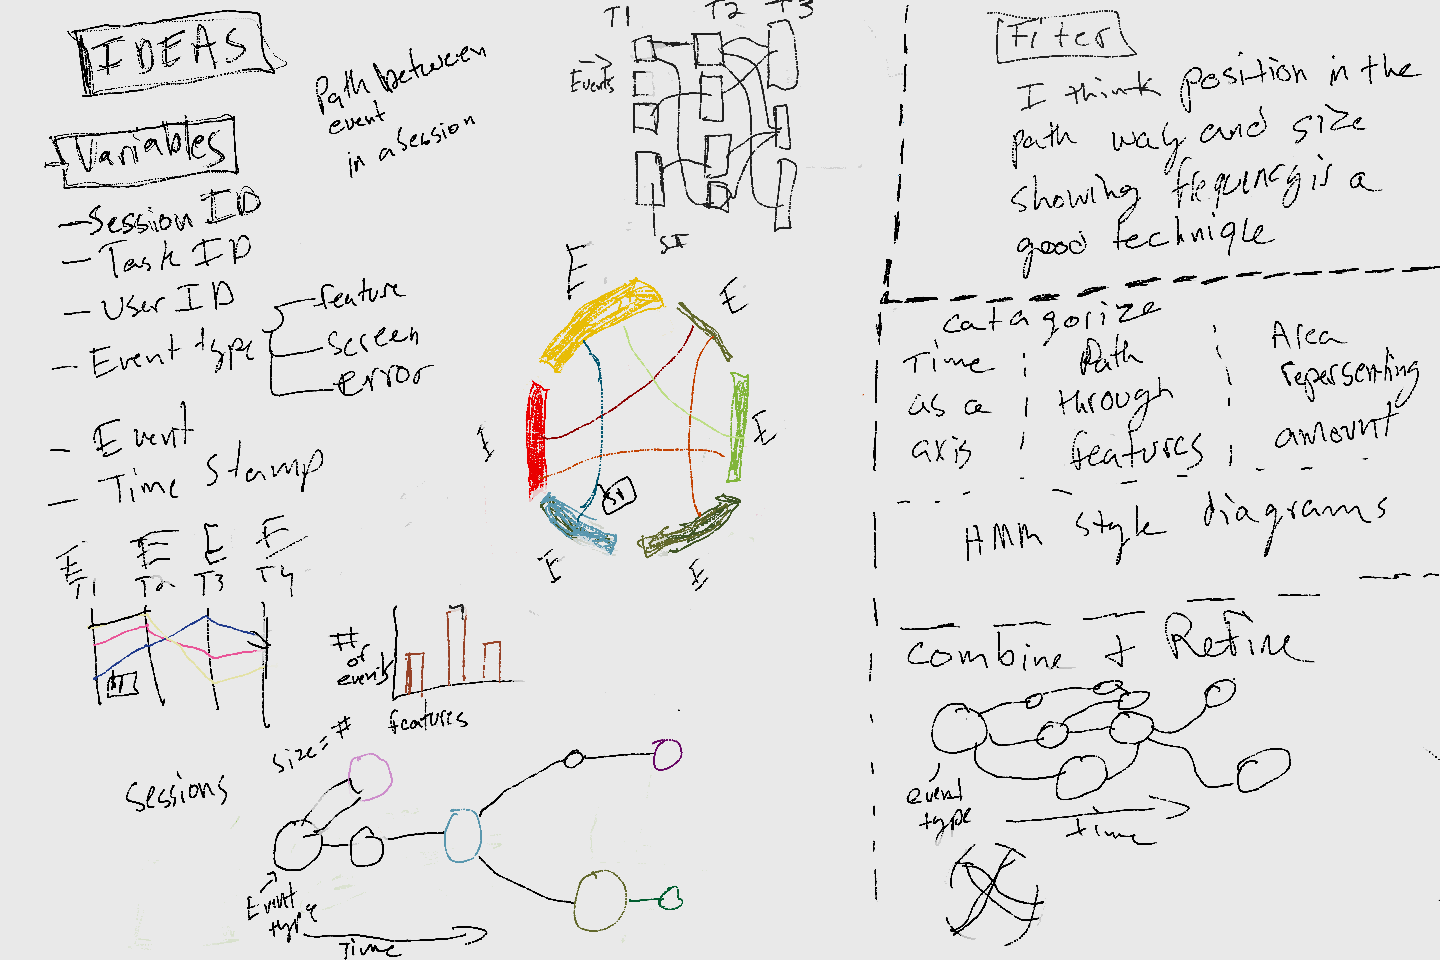 IDEAS
Path between
event
in a session
Variables
- Session ID
- Task ID
- User ID
- Event type
feature
screen
error
- Event
- Time Stamp
T1 T2 T3
Events
E
E
E
E
E
S1
E E E E
T1 T2 T3 T4
# of
events
features
size = #
sessions
Event
type
Time
Filter
I think position in the
path way and size
showing frequency is a
good technique
catagorize
Time
as a
axis
Path
through
features
Area
repersenting
amount
HMM style diagrams
Combine + Refine
event
type
time